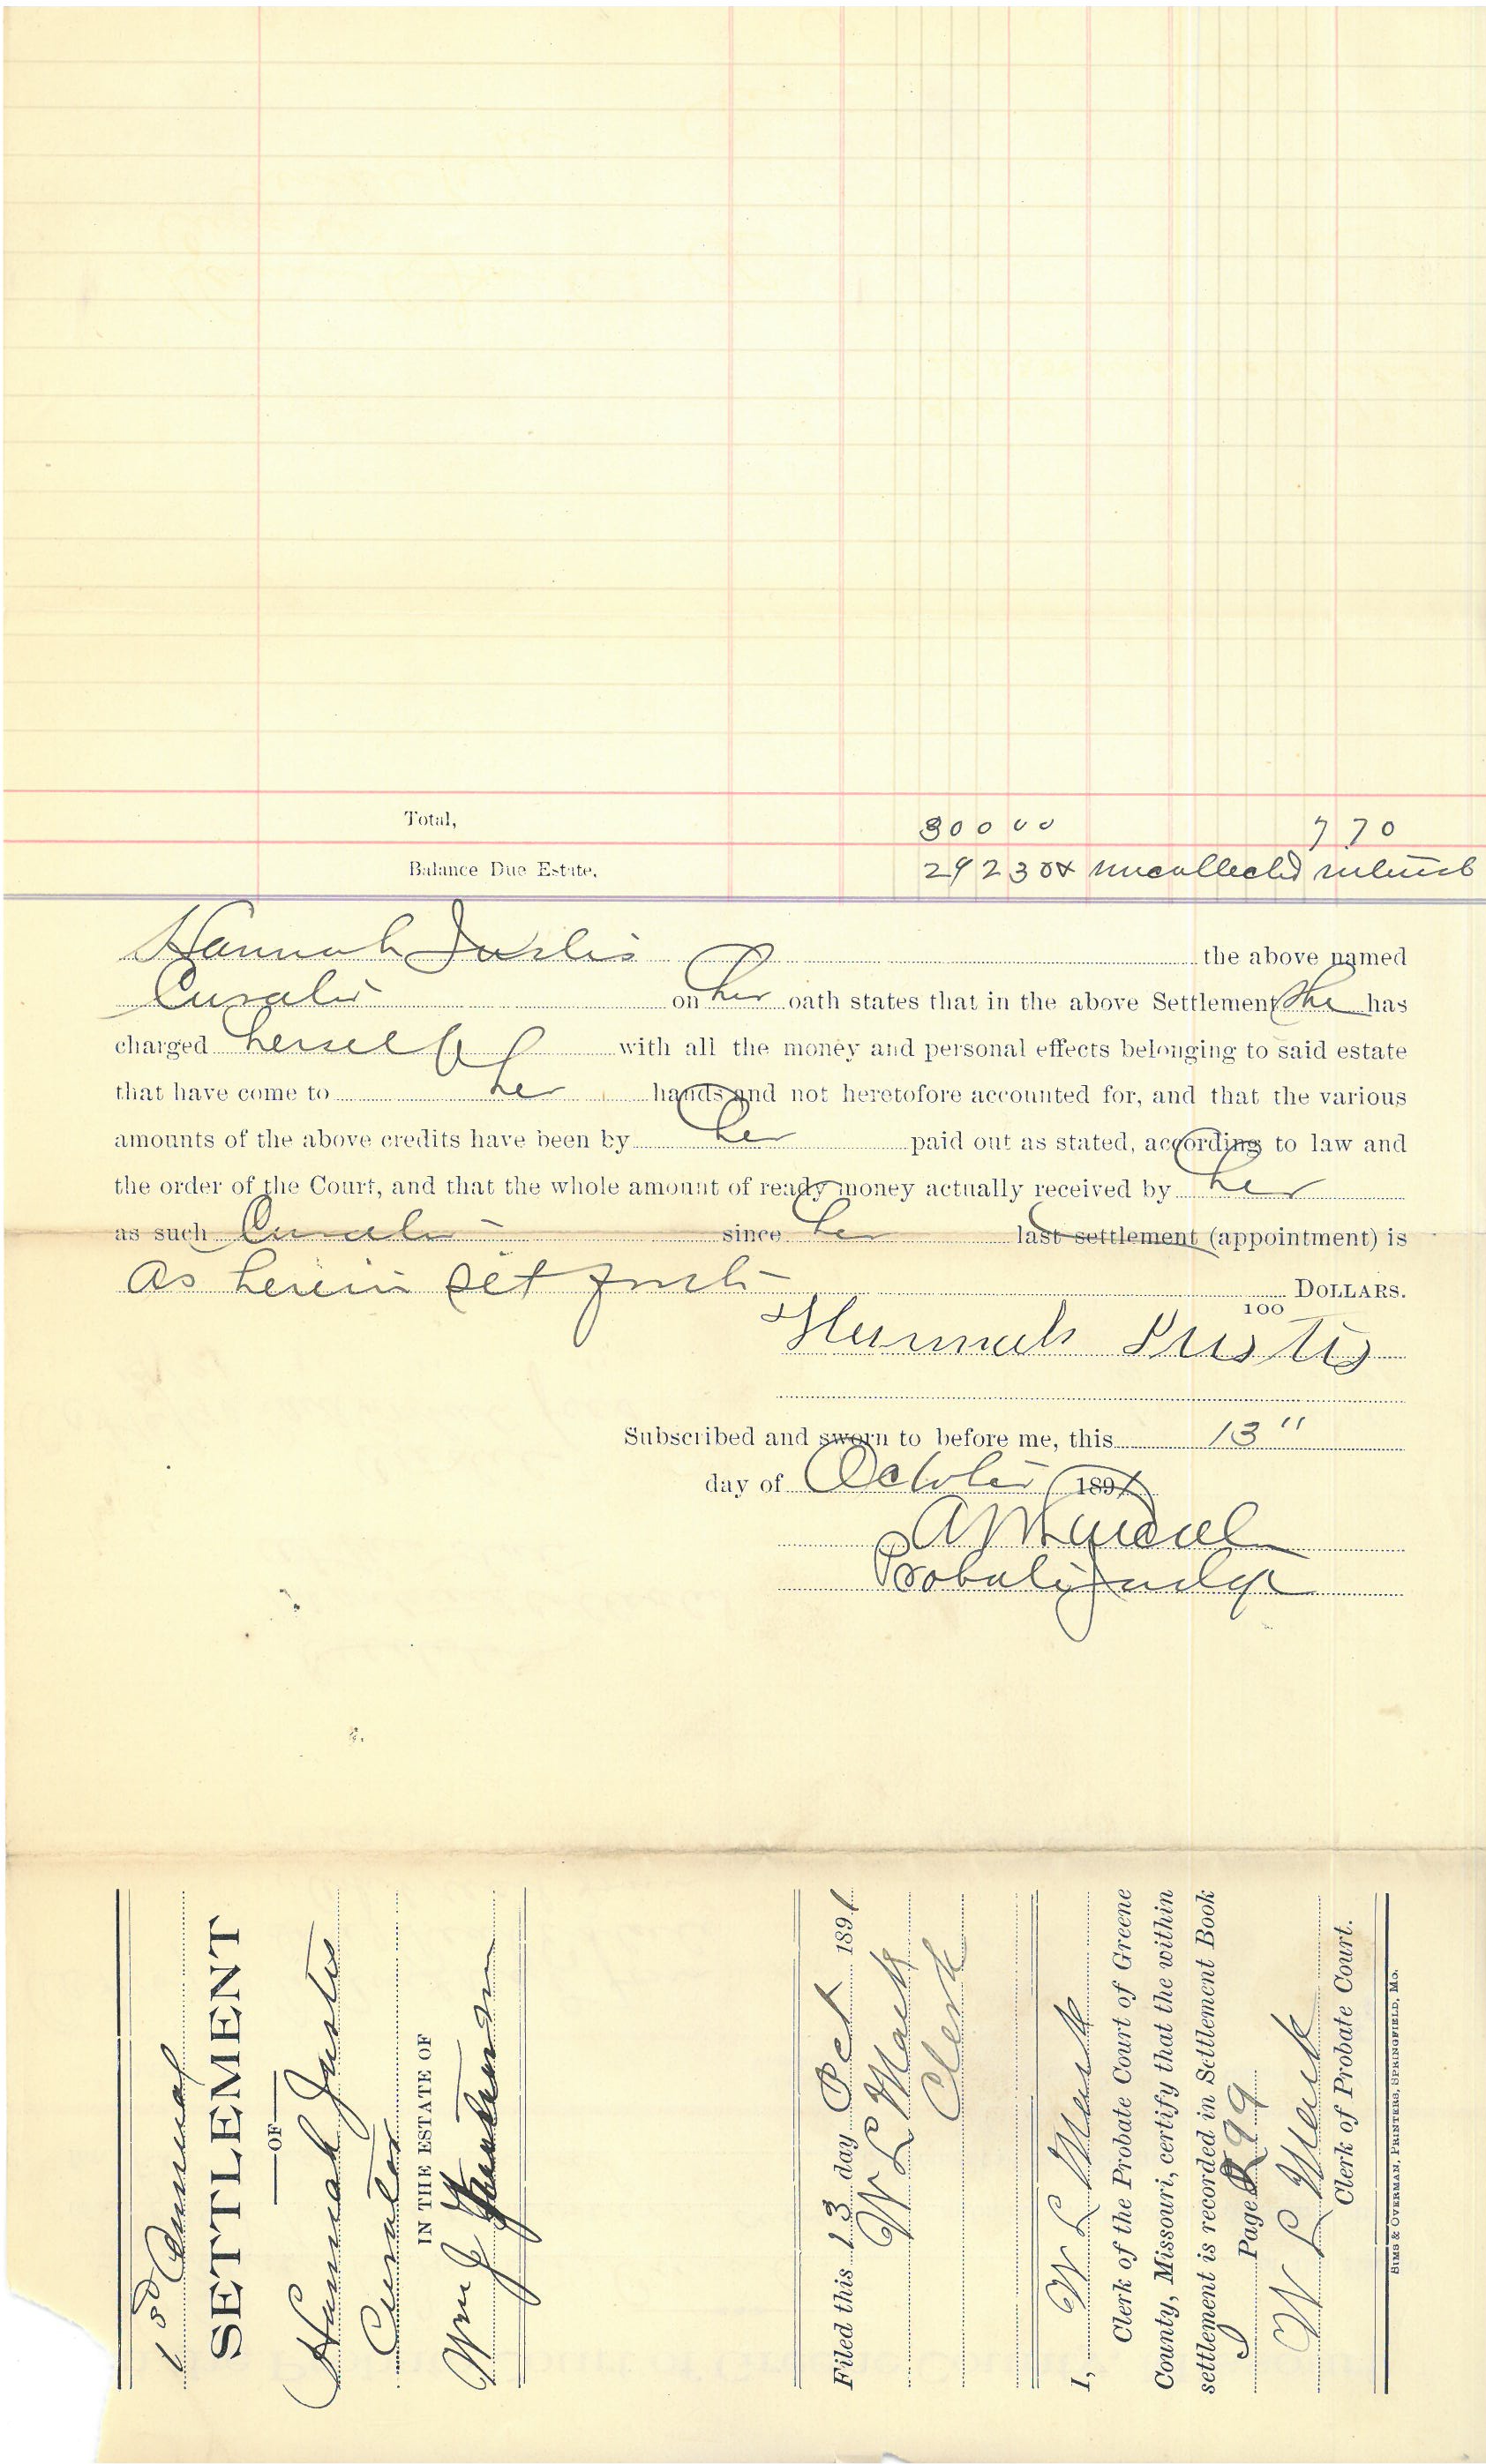 Total, 300 00 7 70
Balance Due Estate, 292 30 uncollected
Hannah Justis the above named
Curator on her oath states that in the above Settlement She has
charged herself with all the money and personal effects belonging to said estate
that have come to her hands and not heretofore accounted for, and that the various
amounts of the above credits have been by her paid out as stated, according to law and
the order of the Court, and that the whole amount of ready money actually received by her
as such Curator since her last settlement (appointment) is
As herein set forth DOLLARS.
100
Hannah Justis
Subscribed and sworn to before me, this 13"
day of October 1891
Probate Judge
1st Annual
SETTLEMENT
OF
Hannah Justis
Curator
IN THE ESTATE OF
Wm J
Filed this 13 day Oct 1891
W L Mack
Clerk
I, W L Mack
Clerk of the Probate Court of Greene
County, Missouri, certify that the within
settlement is recorded in Settlement Book
J Page 299
W L Mack
Clerk of Probate Court.
SIMS & OVERMAN, PRINTERS, SPRINGFIELD, MO.